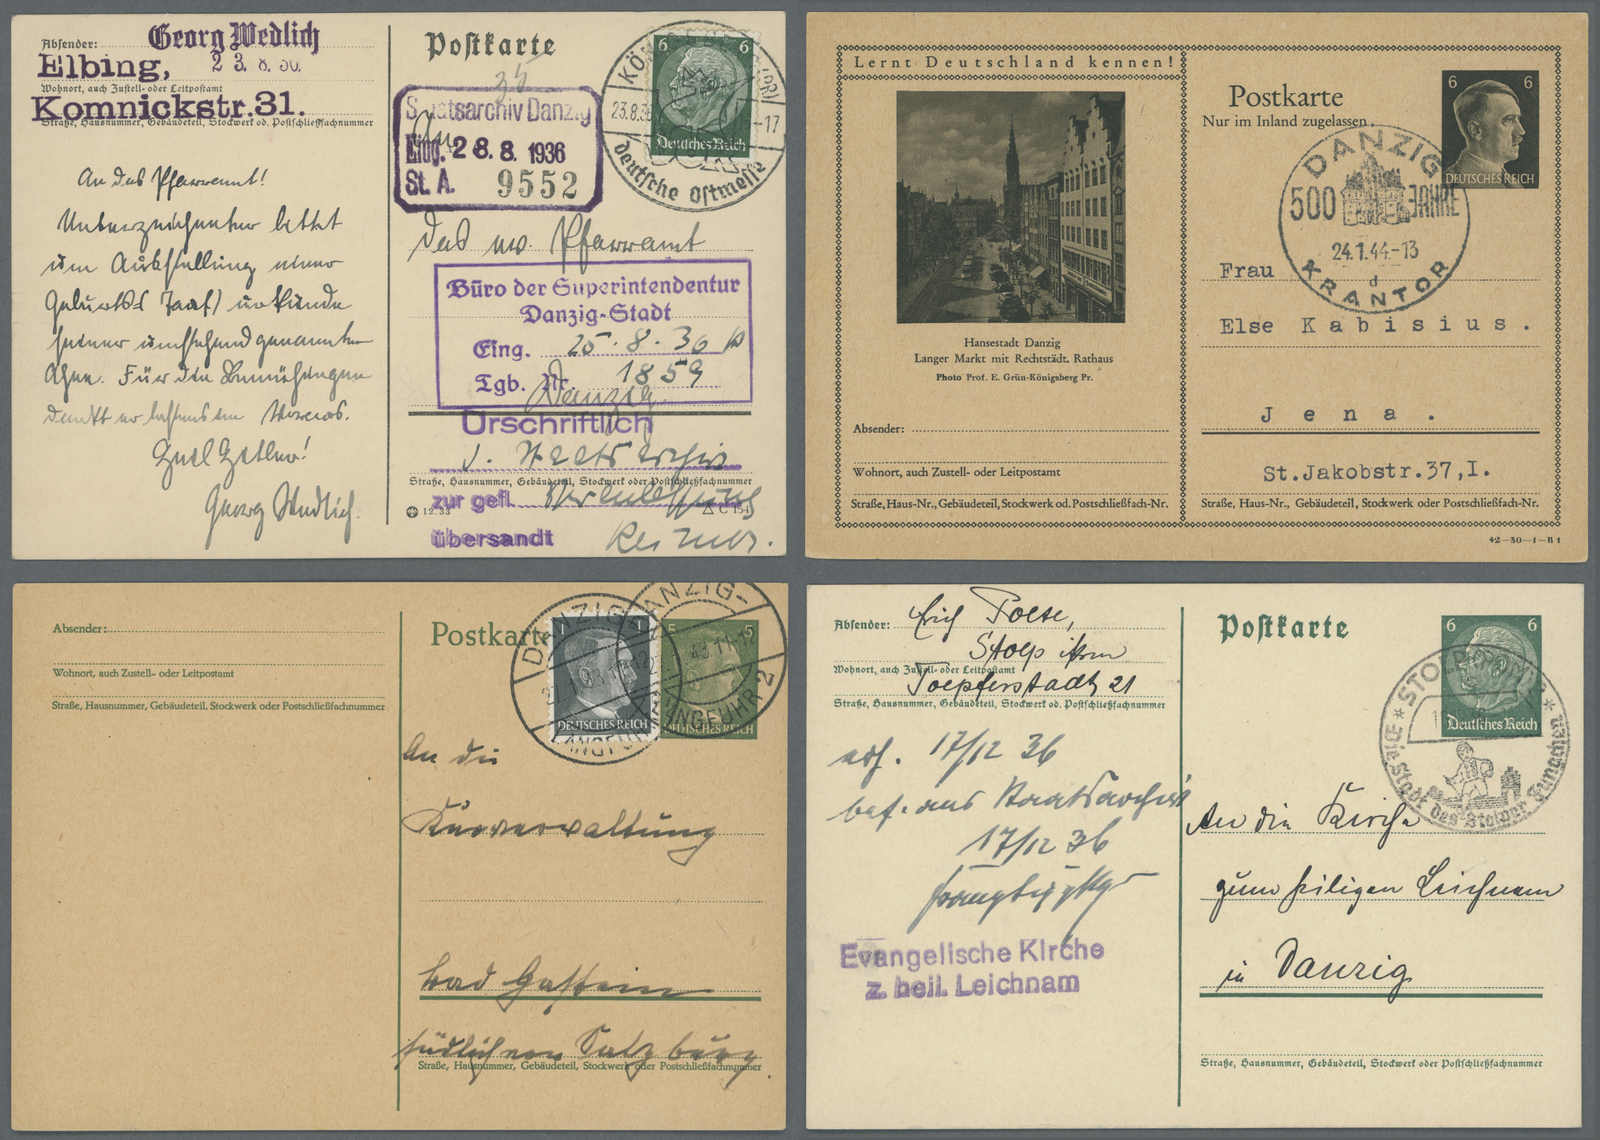 Absender:
Georg Wedlich
Elbing,
23.8.36.
Wohnort, auch Zustell- oder Leitpostamt
Komnickstr.31.
Straße, Hausnummer, Gebäudeteil, Stockwerk od. Postschließfachnummer
An das Pfarramt!
Unterzeichneter bittet
um Ausstellung einer
Geburts(Tauf)urkunde
seiner umstehend genannten
Ahnen. Für die Bemühungen
dankt er bestens im Voraus.
Heil Hitler!
Georg Wedlich.
Postkarte
6 6
Deutsches Reich
23.8.36
-17
deutsche Ostmesse
Staatsarchiv Danzig
Eing. 28.8.1936
St. A. 9552
An
das ev. Pfarramt
Büro der Superintendentur
Danzig-Stadt
Eing. 25.8.36
Tgb. Nr. 1859
Danzig
Urschriftlich
d. Staatsarchiv
Straße, Hausnummer, Gebäudeteil, Stockwerk oder Postschließfachnummer
zur gefl.
übersandt
12.33
C 154
Lernt Deutschland kennen!
Hansestadt Danzig
Langer Markt mit Rechtstädt. Rathaus
Photo Prof. E. Grün-Königsberg Pr.
Absender:
Wohnort, auch Zustell- oder Leitpostamt
Straße, Haus-Nr., Gebäudeteil, Stockwerk od. Postschließfach-Nr.
Postkarte
Nur im Inland zugelassen
6 6
DEUTSCHES REICH
DANZIG
500 JAHRE
24.1.44.-13
d
KRANTOR
Frau
Else Kabisius.
Jena.
St.Jakobstr.37,I.
Straße, Haus-Nr., Gebäudeteil, Stockwerk oder Postschließfach-Nr.
42-30-1-B1
Absender:
Wohnort, auch Zustell- oder Leitpostamt
Straße, Hausnummer, Gebäudeteil, Stockwerk oder Postschließfachnummer
Postkarte
1 1
DEUTSCHES REICH
5 5
DEUTSCHES REICH
DANZIG-
LANGFUHR 2
DANZIG-
LANGFUHR 2
An die
Kurverwaltung
Bad Gastein
südlich von Salzburg.
Straße, Hausnummer, Gebäudeteil, Stockwerk oder Postschließfachnummer
Absender:
Erich
Stolp
Wohnort, auch Zustell- oder Leitpostamt
Toepferstadt 21
Straße, Hausnummer, Gebäudeteil, Stockwerk od. Postschließfachnummer
17/12 36
aus Staatsarchiv
17/12 36
Evangelische Kirche
z. heil. Leichnam
Postkarte
6 6
Deutsches Reich
Die Stadt des Stolper Jungchen
An die Kirche
zum heiligen Leichnam
in Danzig
Straße, Hausnummer, Gebäudeteil, Stockwerk oder Postschließfachnummer